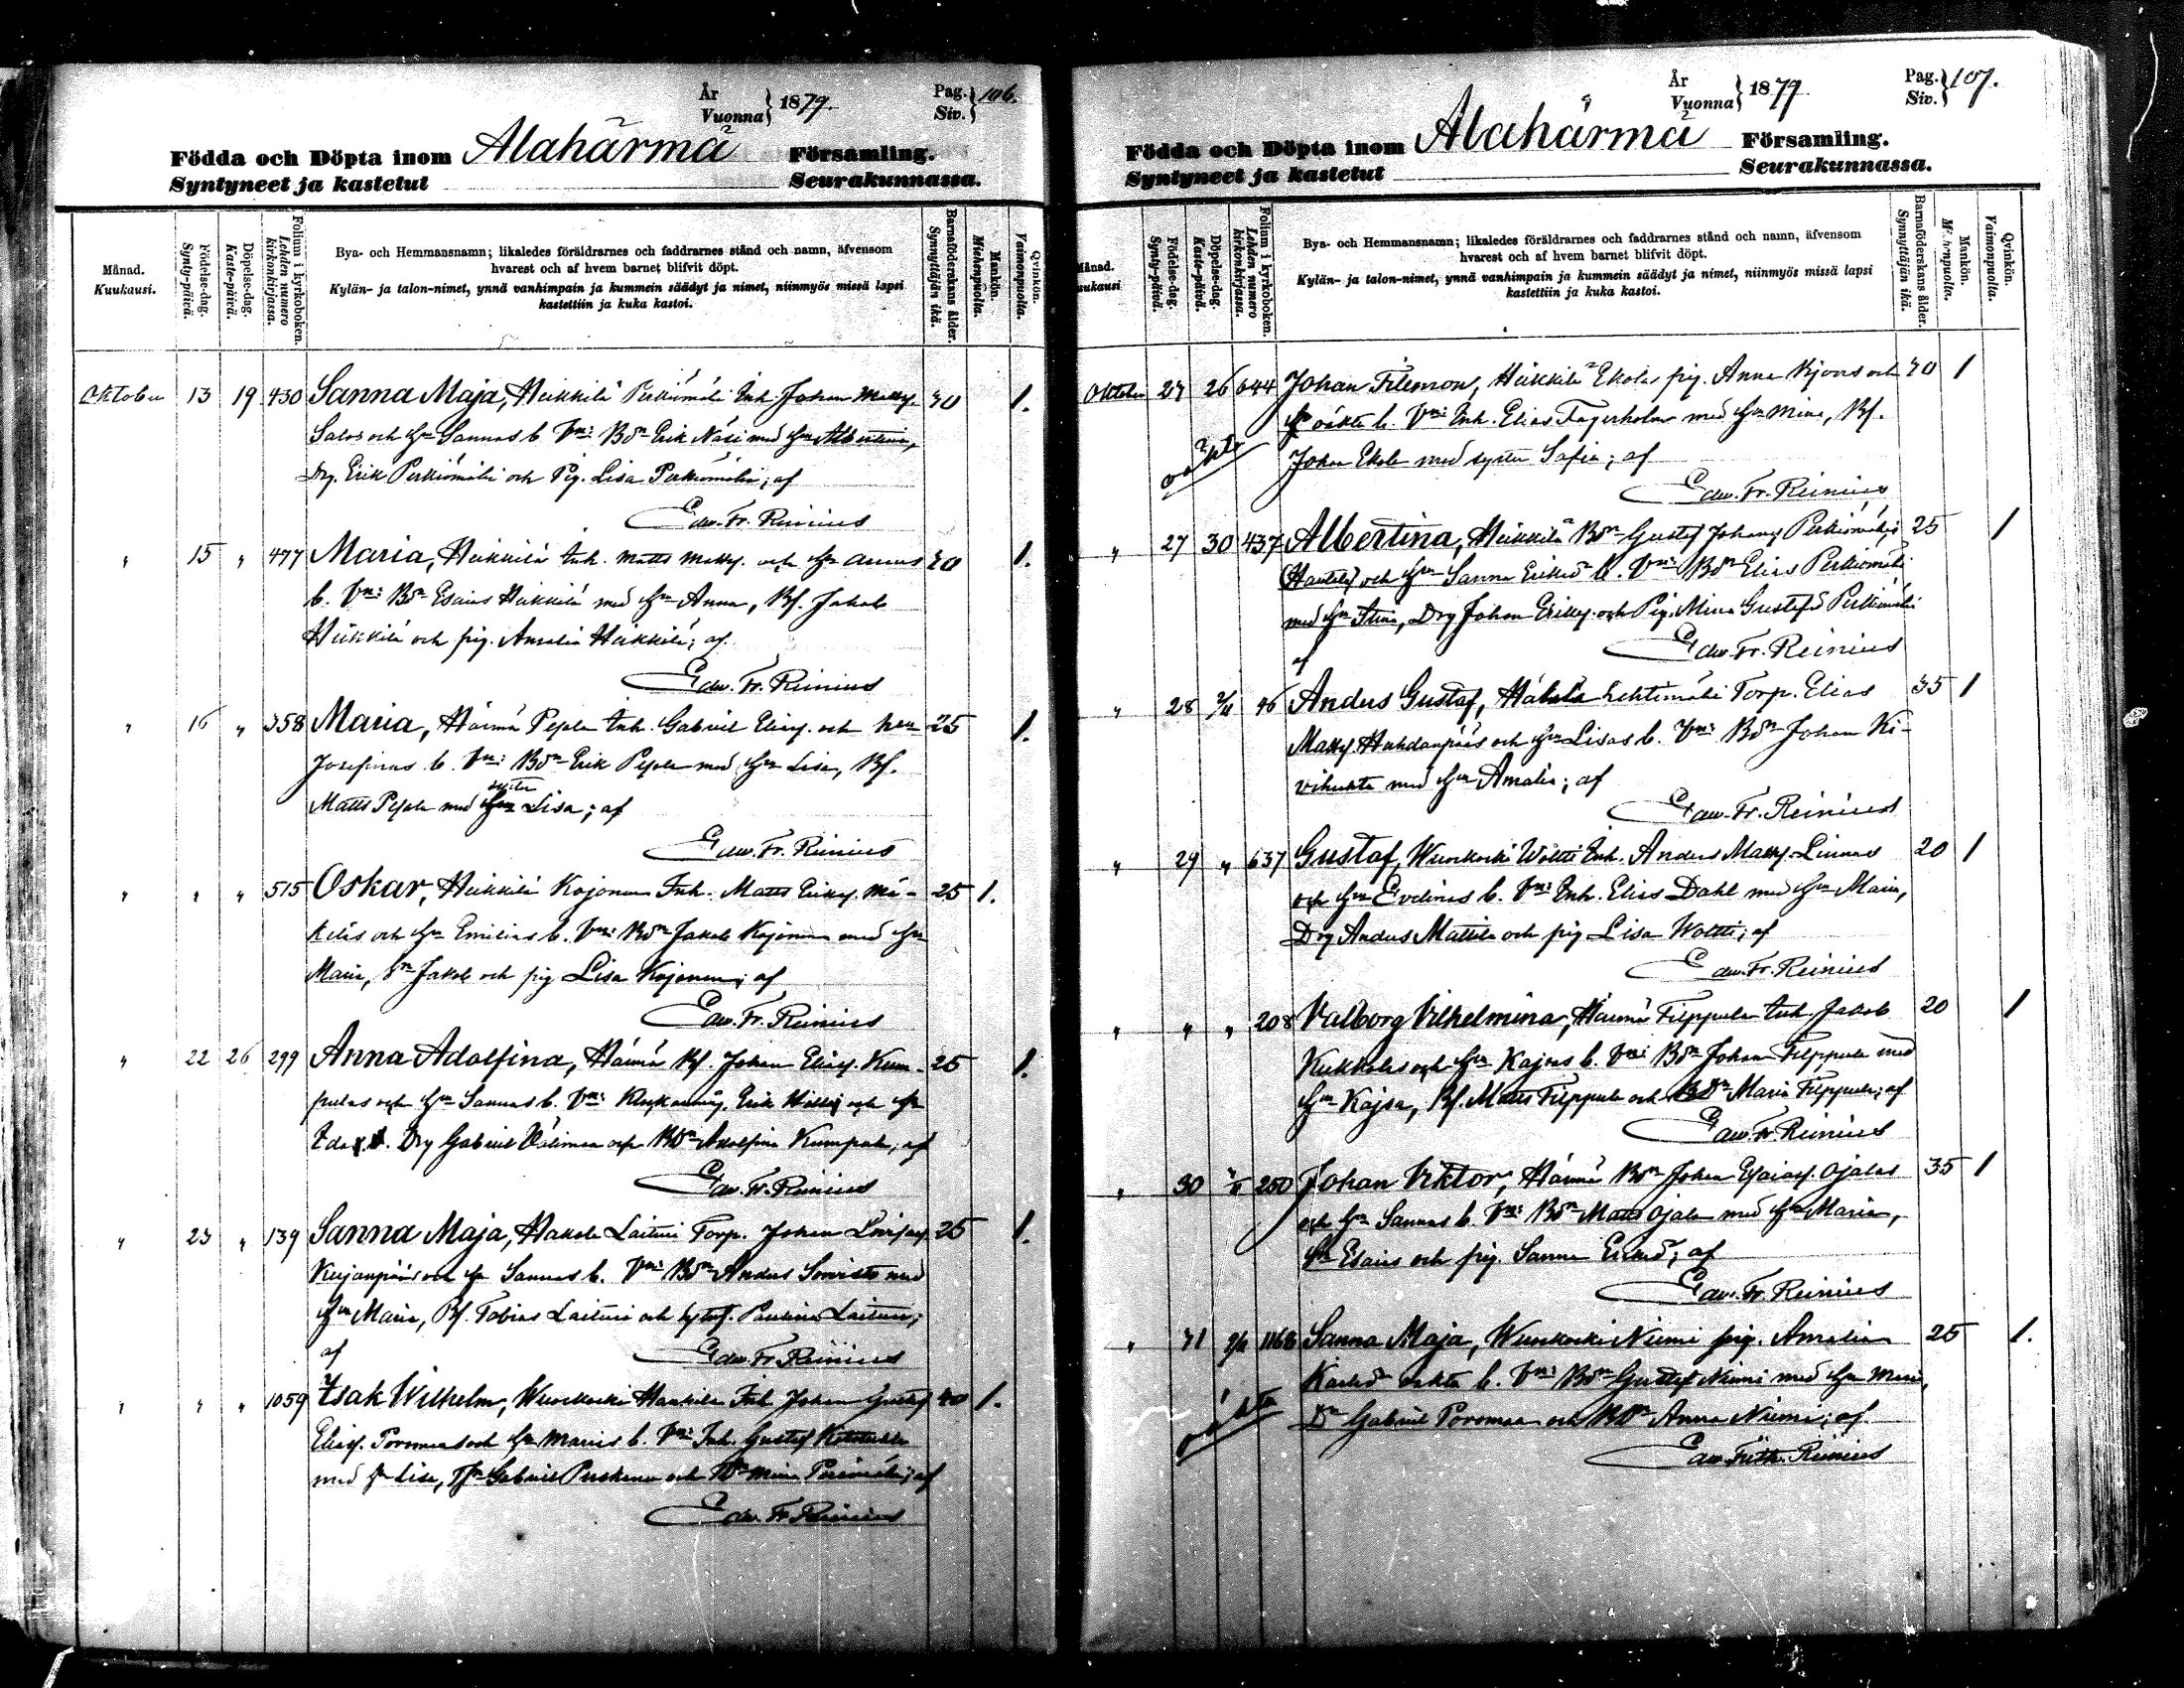 År
Vuonna} 1879.
Pag.
Siv.} 106.
Födda och Döpta inom Alahärmä Församling.
Syntyneet ja kastetut Seurakunnassa.
Månad.
Kuukausi.
Födelse-dag.
Synty-päivä.
Döpelse-dag.
Kaste-päivä.
Folium i kyrkoboken.
Lehden numero
kirkonkirjassa.
Bya- och Hemmansnamn; likaledes föräldrarnes och faddrarnes stånd och namn, äfvensom
hvarest och af hvem barnet blifvit döpt.
Kylän- ja talon-nimet, ynnä vanhimpain ja kummein säädyt ja nimet, niinmyös missä lapsi
kastettiin ja kuka kastoi.
Barnaföderskans ålder.
Synnyttäjän ikä.
Mankön.
Miehenpuolta.
Qvinkön.
Vaimonpuolta.
Oktober 13 19 430 Sanna Maja, Heikkilä Perkiömäki Inh. Johan Matts. 1.
Salos och Hu Sannas b. Vn: Bdn Erik Näsi med Hu Albertina,
Drg. Erik Perkiömäki och Pig. Lisa Perkiömäki; af
Edw. Fr. Reinius
" 15 " 477 Maria, Heikkilä Inh. Matts Matts. och Hu Annas 1.
b. Vn: Bdn Esaias Heikkilä med Hu Anna, Bs. Jakob
Heikkilä och pig. Amalia Heikkilä; af
Edw. Fr. Reinius
" 16 " 358 Maria, Härmä Pesola Inh. Gabriel Elias. och Hu 25 1.
Josefinas b. Vn: Bdn Erik Pesola med Hu Lisa, Bs.
Matts Pesola med syster Lisa; af
Edw. Fr. Reinius
" " " 515 Oskar, Heikkilä Kojonen Inh. Matts Eriks. Mä- 25 1.
kiläs och Hu Emilias b. Vn: Bdn Jakob Kojonen med Hu
Maria, Jakob och pig Lisa Kojonen; af
Edw. Fr. Reinius
" 22 26 299 Anna Adolfina, Härmä Bs. Johan Elias. Kum- 25 1.
pulas och Hu Sannas b. Vn: Erik och Hu
Ida. Drg Gabriel Välimaa och Bdr Adolfina Kumpula; af
Edw. Fr. Reinius
" 23 " 139 Sanna Maja, Hakola Laituri Torp. Johan 25 1.
Kujanpääs och Hu Sannas b. Vn: Bdn Anders Soinisto med
Hu Maria, Bs. Tobias Laituri och Paulina Laituri;
af Edw. Fr. Reinius
" " " 1059 Isak Wilhelm, Wuoskoski Hankila Inh Johan Gustaf 40 1.
Elias. Poromaas och Hu Marias b. Vn: Inh. Gustaf
med Hu Lisa, Gabriel och Mina; af
Edw. Fr. Reinius
År
Vuonna} 1879
Pag.
Siv.} 107.
Födda och Döpta inom Alahärmä Församling.
Syntyneet ja kastetut Seurakunnassa.
Månad.
Kuukausi
Födelse-dag.
Synty-päivä.
Döpelse-dag.
Kaste-päivä.
Folium i kyrkoboken.
Lehden numero
kirkonkirjassa.
Bya- och Hemmansnamn; likaledes föräldrarnes och faddrarnes stånd och namn, äfvensom
hvarest och af hvem barnet blifvit döpt.
Kylän- ja talon-nimet, ynnä vanhimpain ja kummein säädyt ja nimet, niinmyös missä lapsi
kastettiin ja kuka kastoi.
Barnaföderskans ålder.
Synnyttäjän ikä.
Mankön.
Miehenpuolta.
Qvinkön.
Vaimonpuolta.
Oktober 26 644 Johan Filemon, Heikkilä Ekola pig. Anna 1
oäkta b. Vn: Inh. Elias Fagerholm med Hu Mina, Bs.
oäkta
Johan Ekola med syster Sofia; af
Edw. Fr. Reinius
" 27 30 437 Albertina, Heikkilä Bdn Gustaf Johans. Perkiömäkis 25 1
(Hautala) och Hu Sanna Eriksd. b. Vn: Bdn Elias Perkiömäki
med Hu Stina, Drg Johan Eriks. och Pig. Mina Gustafsd Perkiömäki
af Edw. Fr. Reinius
" 28 2/11 46 Anders Gustaf, Hakola Lehtimäki Torp. Elias 35 1
Matts. Huhdanpääs och Hu Lisas b. Vn: Bdn Johan Ki-
vihuhta med Hu Amalia; af
Edw. Fr. Reinius
" 29 " 637 Gustaf, Wuoskoski Woltti Inh. Anders Matts. Linnas 20 1
och Hu Evelinas b. Vn: Inh. Elias Dahl med Hu Maria,
Drg Anders Mattila och pig Lisa Woltti; af
Edw. Fr. Reinius
" " " 208 Valborg Vilhelmina, Härmä Filppula Inh. Jakob 20 1
Kukkolas och Hu Kajsas b. Vn: Bdn Johan Filppula med
Hu Kajsa, Bs. Matts Filppula och Bdr Maria Filppula; af
Edw. Fr. Reinius
" 30 250 Johan Viktor, Härmä Bdn Johan Esaias. Ojalas 35 1
och Hu Sannas b. Vn: Bdn Matts Ojala med Hu Maria,
Esaias och pig. Sanna; af
Edw. Fr. Reinius
" 31 1168 Sanna Maja, Wuoskoski Niemi pig. Amalia 25 1.
Karlsd oäkta b. Vn: Bdn Gustaf Niemi med Hu Maria,
oäkta
Gabriel Poromaa och Bdr Anna Niemi; af
Edw. Frith. Reinius